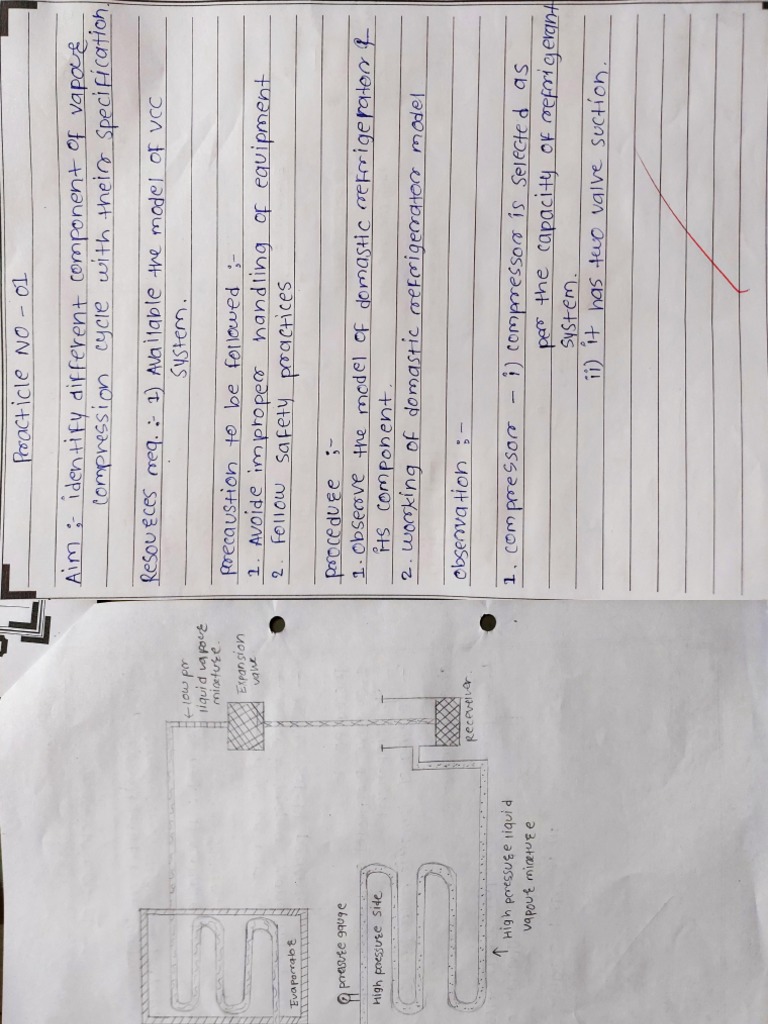 Practicle NO - 01
Aim :- identify different component of vapour
compression cycle with their specification.
Resources req. :- 1) Available the model of VCC
system.
precaustion to be followed :-
1. Avoide improper handling of equipment
2. follow safety practices
procedure :-
1. observe the model of domastic refrigerator &
its component.
2. working of domastic refrigerator model
observation :-
1. compressor - i) compressor is selected as
per the capacity of refrigerant
system.
ii) it has two valve suction.
← low pr
liquid vapour
mixture.
Expansion
valve
Receveiver
Evaporrabe
pressure gauge
High pressure side
↑ High pressure liquid
vapour mixture